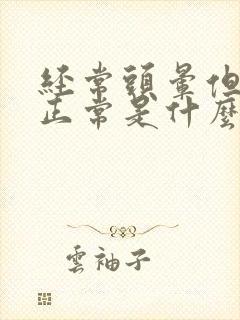 經常頭暈但
正常是什麼
雲袖子